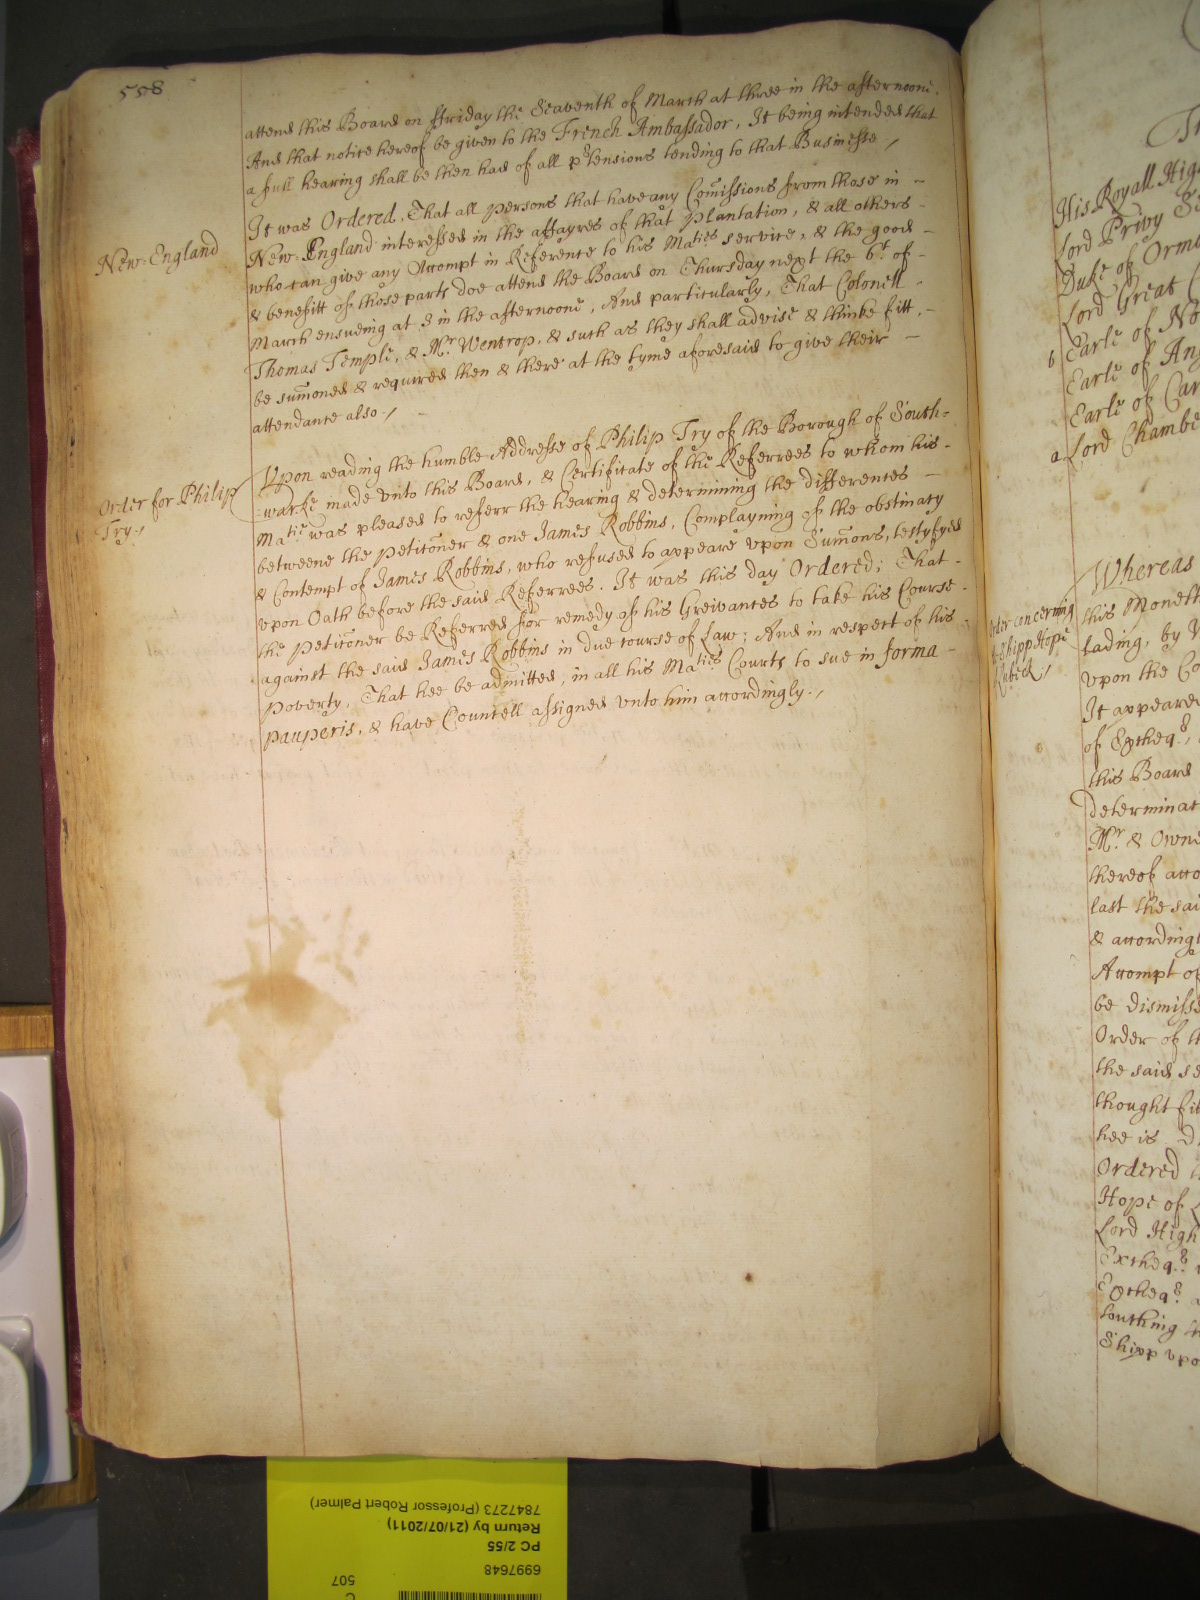 558
attend this Board on ffriday the Seaventh of March at three in the afternoone.
And that notice hereof be given to the French Ambassador, It being intended that
a full hearing shall be then had of all p̃tensions tending to that Businesse /
New=England
It was Ordered, That all persons that have any Com̃issions from those in -
New-England interessed in the affayres of that Plantation, & all others -
who can give any Accompt in Reference to his Maties service, & the good -
& benefitt of those parts doe attend the Board on Thursday next the 6th of -
March ensueing at 3 in the afternoone, And particularly, That Colonell -
Thomas Temple, & Mr Wentrop, & such as they shall advise & thinke fitt, -
be sum̃oned & required then & there at the tyme aforesaid to give their -
attendance also /
Order for Philip
Try /
Vpon reading the humble Addresse of Philip Try of the Borough of South=
=warke made vnto this Board, & Certificate of the Referrees to whom his -
Matie was pleased to referr the hearing & determining the differences -
betweene the petic̃oner & one James Robbins, Complayning of the obstinacy
& Contempt of James Robbins, who refused to appeare vpon Sum̃ons, testyfyed
vpon Oath before the said Referrees. It was this day Ordered; That -
the petic̃oner be Referred for remedy of his Greivances to take his Course -
against the said James Robbins in due course of Law; And in respect of his -
poverty, That hee be admitted, in all his Maties Courts to sue in forma -
pauperis, & have Councell assigned vnto him accordingly. /
His Royall Hig
Lord Privy Se
Duke of Ormo
Lord Great C
b Earle of No
Earle of Ang
Earle of Car
a Lord Chambe
Order concerning
Shipp Hope
Lubeck /
Whereas
this Moneth
lading, by
vpon the Co
It appeared
of Excheqr,
this Board
determinat
Mr & Owne
thereof acco
last the sai
& according
Accompt of
be dismisse
Order of th
the said se
thought fit
hee is
Ordered
Hope of L
Lord High
Excheqr
Excheqr a
touching
Shipp vpo
7847273 (Professor Robert Palmer)
Return by (21/07/2011)
PC 2/55
6997648
507
C